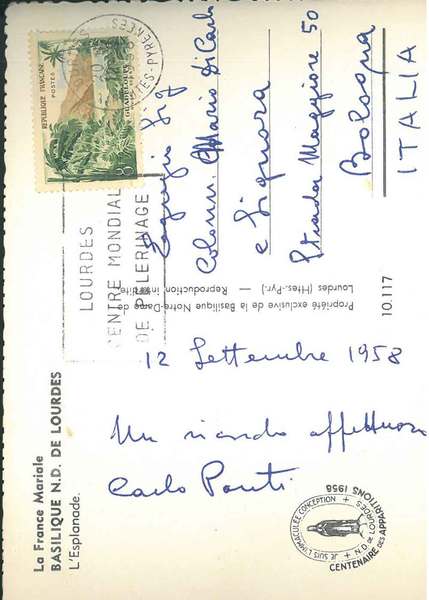 La France Mariale
BASILIQUE N.D. DE LOURDES
L'Esplanade.
12 Settembre 1958
Un ricordo affettuoso
Carlo Ponti
JE SUIS L'IMMACULÉE CONCEPTION + N.D. DE LOURDES +
CENTENAIRE DES APPARITIONS 1958
Propriété exclusive de la Basilique Notre-Dame de
Lourdes (Htes.-Pyr.) — Reproduction interdite.
10.117
LOURDES
CENTRE MONDIAL
DE PELERINAGE
HTES-PYRENEES
REPUBLIQUE FRANÇAISE
POSTES
GUADELOUPE
8F
Egregio Sig
Colonn. Mario Di Carl
e Signora
Strada Maggiore 50
Bologna
ITALIA